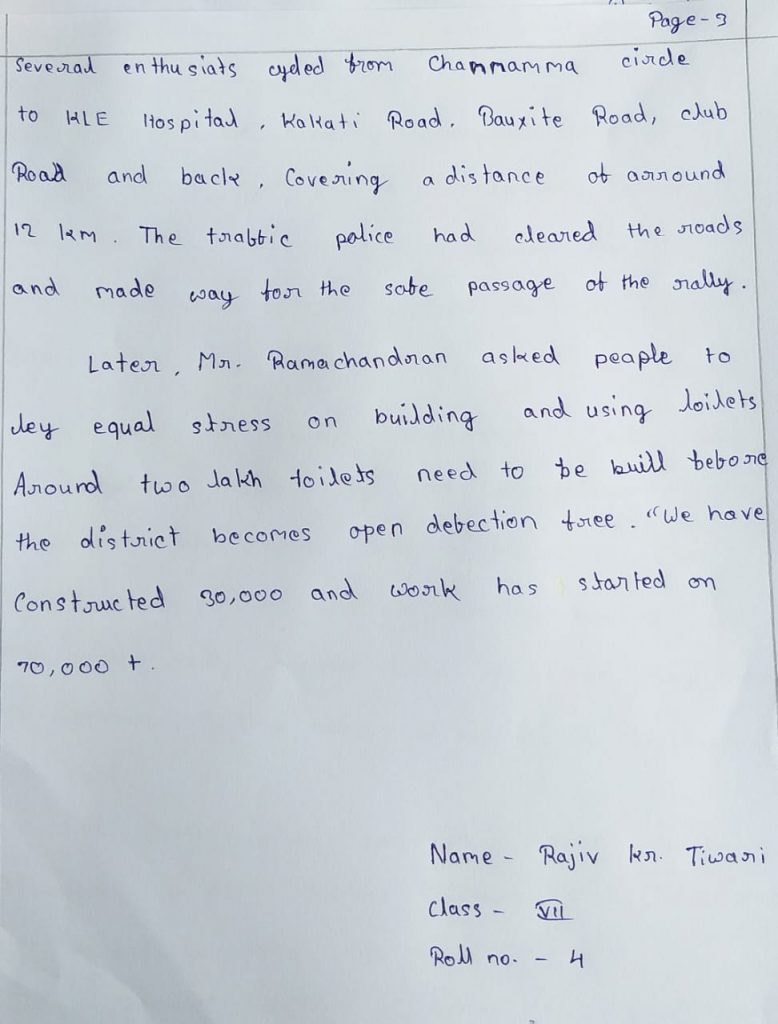 Page-3
Several enthusiats cycled from Channamma circle
to KLE Hospital, Kakati Road, Bauxite Road, club
Road and back, Covering a distance of arround
12 km. The traffic police had cleared the roads
and made way for the safe passage of the rally.
Later, Mr. Ramachandran asked people to
ley equal stress on building and using toilets
Around two lakh toilets need to be built before
the district becomes open defection free. "We have
Constructed 30,000 and work has started on
70,000 +.
Name - Rajiv kr. Tiwari
Class - VII
Roll no. - 4